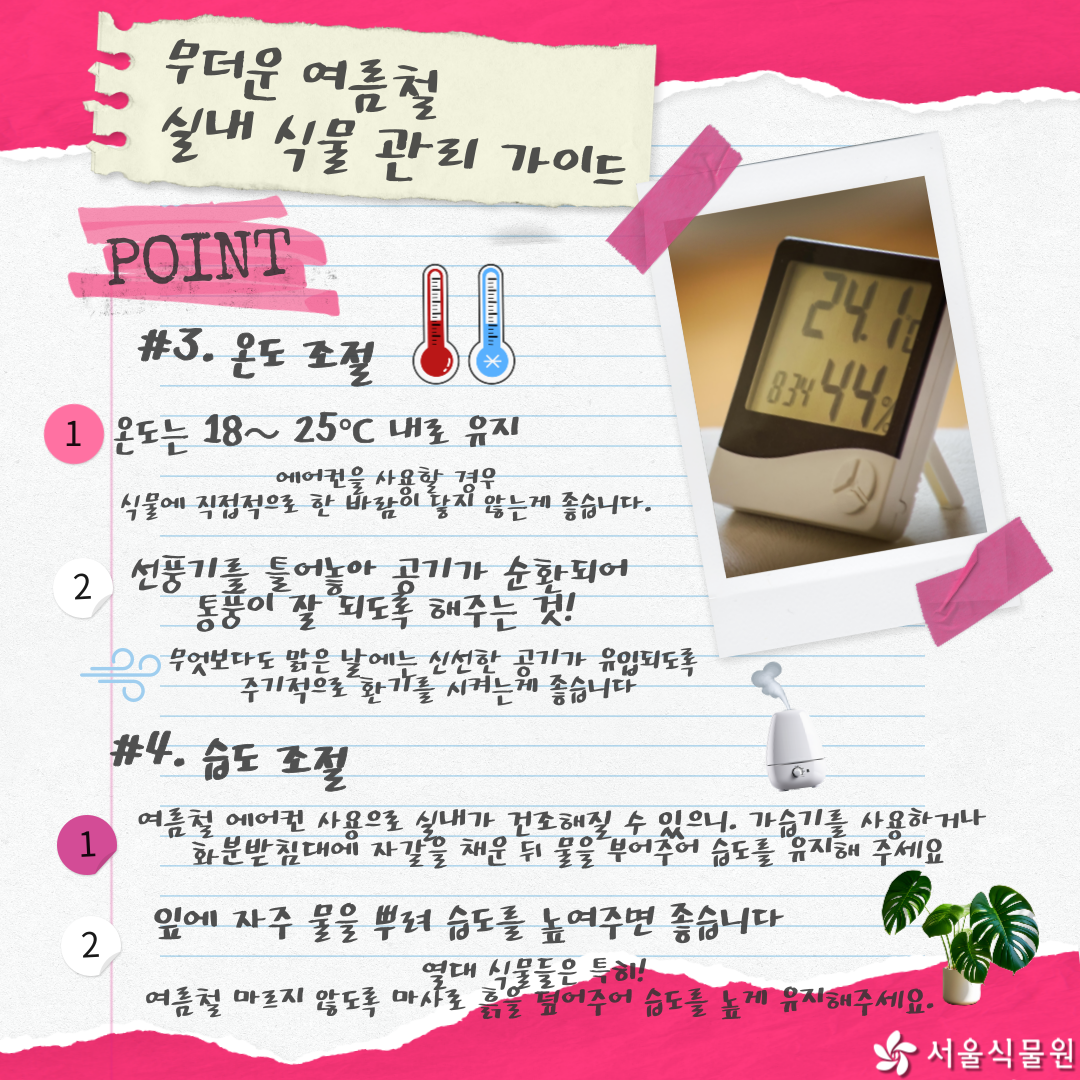 무더운 여름철
실내 식물 관리 가이드
POINT
#3. 온도 조절
1
온도는 18~ 25°C 내로 유지
에어컨을 사용할 경우
식물에 직접적으로 한 바람이 닿지 않는게 좋습니다.
2
선풍기를 틀어놓아 공기가 순환되어
통풍이 잘 되도록 해주는 것!
무엇보다도 맑은 날에는 신선한 공기가 유입되도록
주기적으로 환기를 시켜는게 좋습니다
24.1
8:34 44%
#4. 습도 조절
1
여름철 에어컨 사용으로 실내가 건조해질 수 있으니. 가습기를 사용하거나
화분받침대에 자갈을 채운 뒤 물을 부어주어 습도를 유지해 주세요
2
잎에 자주 물을 뿌려 습도를 높여주면 좋습니다
열대 식물들은 특히!
여름철 마르지 않도록 마사로 흙을 덮어주어 습도를 높게 유지해주세요.
서울식물원